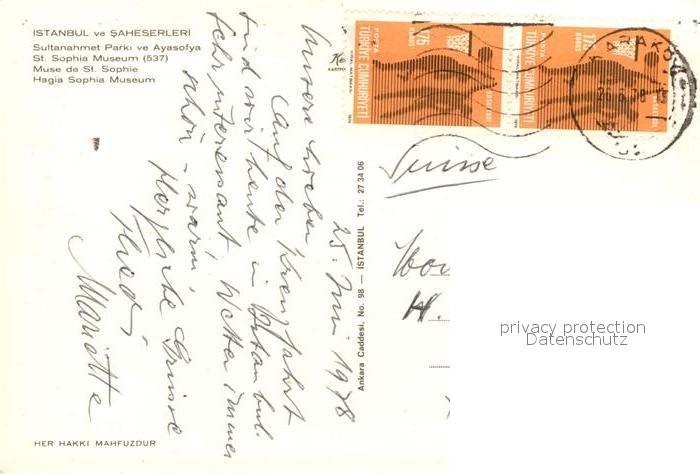 İSTANBUL ve ŞAHESERLERİ
Sultanahmet Parkı ve Ayasofya
St. Sophia Museum (537)
Muse de St. Sophie
Hagia Sophia Museum
25. Juni 1978
Unsere Lieben
Auf der Kreuzfahrt
sind wir heute in Istanbul.
Sehr interessant. Wetter immer
schön - warm.
Herzliche Grüsse
Thedi
Mariette
HER HAKKI MAHFUZDUR
Ankara Caddesi, No. 98 — İSTANBUL Tel.: 27 34 06
POSTA
TÜRKİYE CUMHURİYETİ
175
KURUŞ
BASKETBOL
POSTA
TÜRKİYE CUMHURİYETİ
175
KURUŞ
BASKETBOL
KARAKÖY
26.6.78
Suisse
H.
privacy protection
Datenschutz